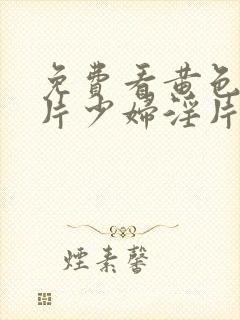 免費看黄色
片少婦淫片
煙素馨